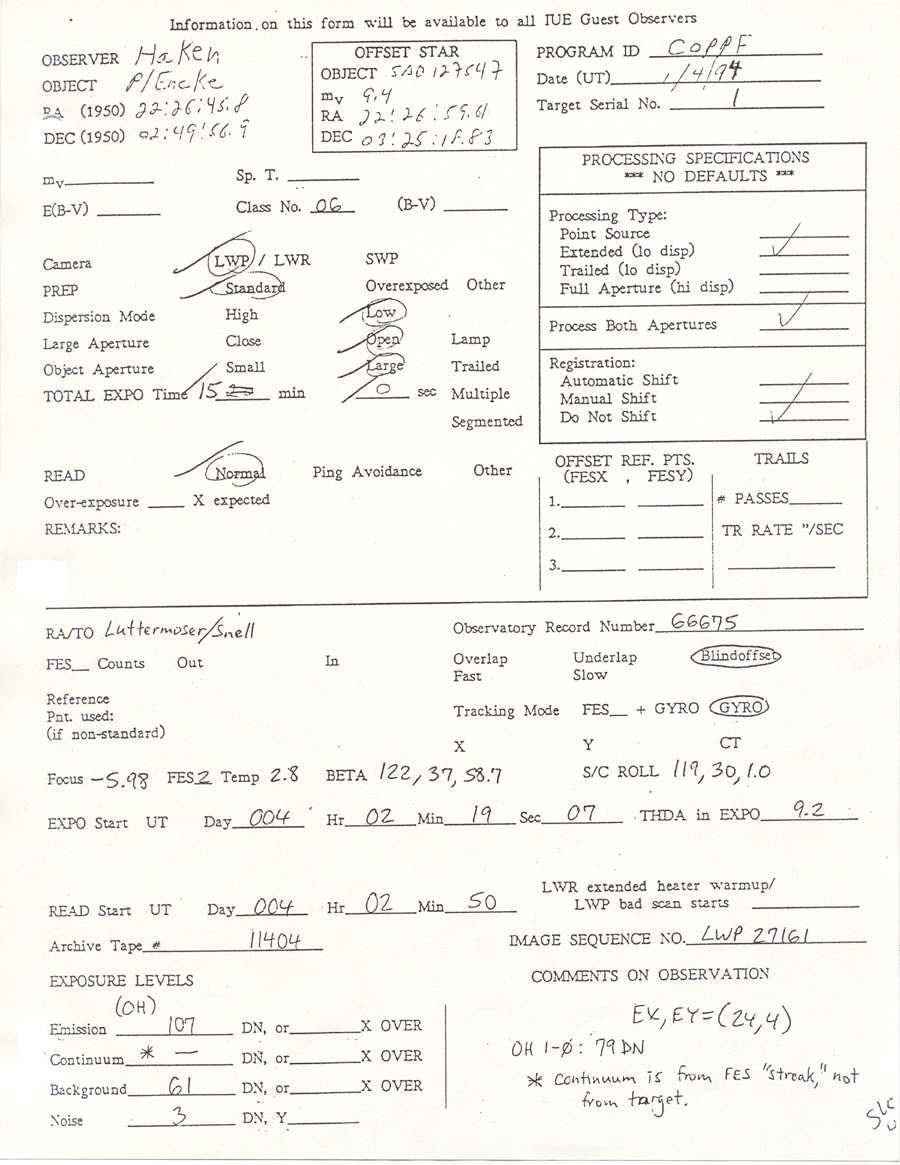 Information on this form will be available to all IUE Guest Observers
OBSERVER Haken
OBJECT P/Encke
RA (1950) 22:26:45.8
DEC (1950) 02:49:56.9
OFFSET STAR
OBJECT SAO 127547
mv 9.4
RA 22:26:59.61
DEC 03:25:18.83
PROGRAM ID COPPF
Date (UT) 1/4/94
Target Serial No. 1
mv
Sp. T.
E(B-V)
Class No. 06
(B-V)
PROCESSING SPECIFICATIONS
*** NO DEFAULTS ***
Processing Type:
Point Source
Extended (lo disp)
Trailed (lo disp)
Full Aperture (hi disp)
Process Both Apertures
Registration:
Automatic Shift
Manual Shift
Do Not Shift
Camera LWP / LWR SWP
PREP Standard Overexposed Other
Dispersion Mode High Low
Large Aperture Close Open Lamp
Object Aperture Small Large Trailed
TOTAL EXPO Time 15 min 0 sec Multiple
Segmented
READ Normal Ping Avoidance Other
Over-exposure X expected
REMARKS:
OFFSET REF. PTS.
(FESX , FESY)
1.
2.
3.
TRAILS
# PASSES
TR RATE "/SEC
RA/TO Luttermoser/Snell
Observatory Record Number 66675
FES Counts Out In
Overlap Underlap Blindoffset
Fast Slow
Reference
Pnt. used:
(if non-standard)
Tracking Mode FES + GYRO GYRO
X Y CT
Focus -5.98 FES 2 Temp 2.8 BETA 122, 37, 58.7 S/C ROLL 119, 30, 1.0
EXPO Start UT Day 004 Hr 02 Min 19 Sec 07 THDA in EXPO 9.2
LWR extended heater warmup/
LWP bad scan starts
READ Start UT Day 004 Hr 02 Min 50
Archive Tape # 11404
IMAGE SEQUENCE NO. LWP 27161
EXPOSURE LEVELS
(OH)
Emission 107 DN, or X OVER
Continuum * — DN, or X OVER
Background 61 DN, or X OVER
Noise 3 DN, Y
COMMENTS ON OBSERVATION
EX, EY=(24,4)
OH 1-0: 79 DN
* Continuum is from FES "streak," not
from target.